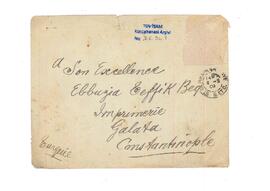 TDV İSAM
Kütüphanesi Arşivi
No
A Son Excellence
Ebbuzia Teffik Beq
Imprimerie
Galata
Constantinople
Turquie